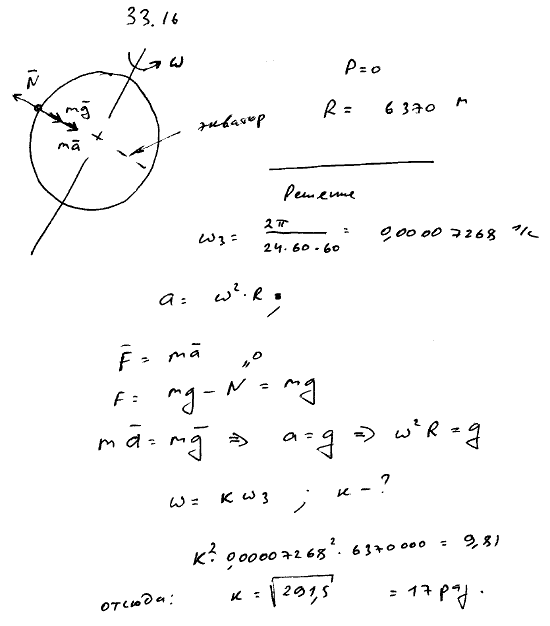 33.16
N̄
ω
mḡ
mā
экватор
P=0
R = 6370 м
Решение
ω₃ = 2π / 24·60·60 = 0,00007268 1/с
a = ω²·R;
F̄ = mā
F = mg − N = mg
"0
mā = mḡ ⇒ a = g ⇒ ω²R = g
ω = κ ω₃ ; κ − ?
κ²·0,00007268²·6370000 = 9,81
отсюда: κ = √291,5 = 17 раз.